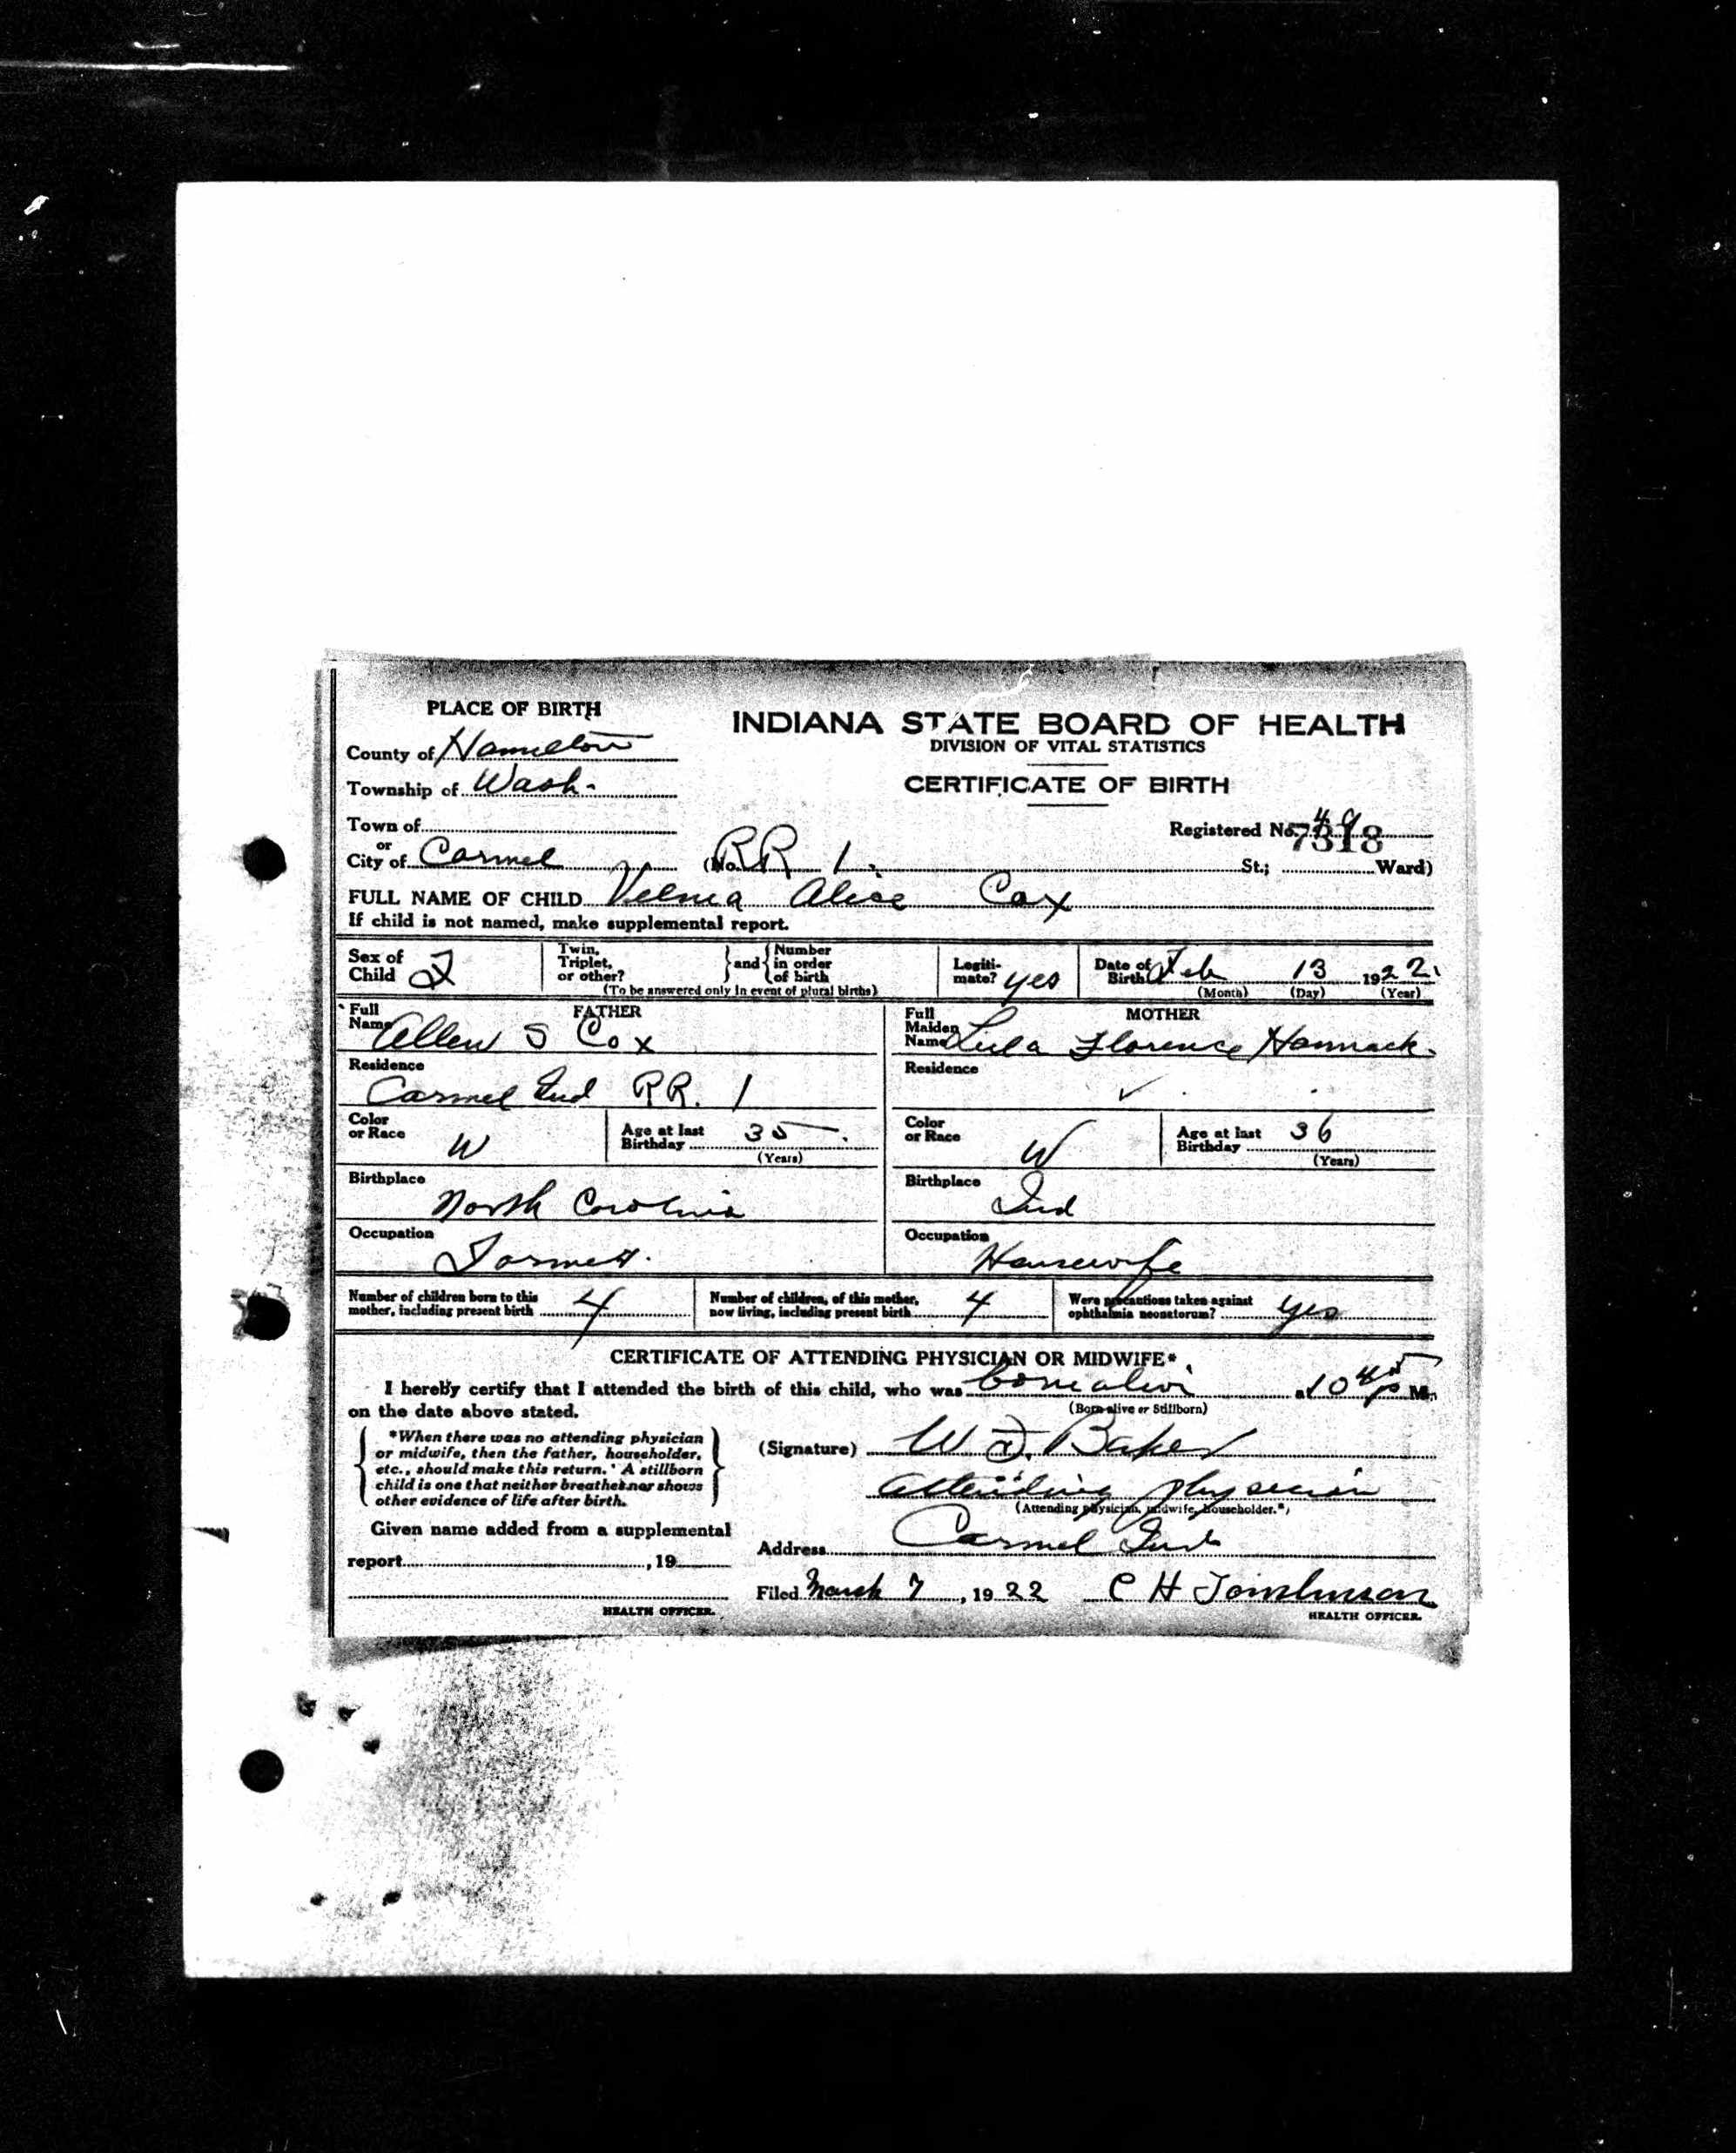 PLACE OF BIRTH
County of Hamilton
Township of Wash.
Town of
or
City of Carmel (No. RR 1. St.; Ward)
INDIANA STATE BOARD OF HEALTH
DIVISION OF VITAL STATISTICS
CERTIFICATE OF BIRTH
Registered No. 49
7318
FULL NAME OF CHILD Velma Alice Cox
If child is not named, make supplemental report.
Sex of Child F
Twin, Triplet, or other? and Number in order of birth
(To be answered only in event of plural births)
Legiti-mate? yes
Date of Birth Feb 13 1922.
(Month) (Day) (Year)
FATHER
Full Name Allen S Cox
Residence
Carmel Ind RR. 1
Color or Race W
Age at last Birthday 35
(Years)
Birthplace
North Carolina
Occupation
Farmer.
MOTHER
Full Maiden Name Lula Florence Hannack.
Residence
✓
Color or Race W
Age at last Birthday 36
(Years)
Birthplace
Ind
Occupation
Housewife
Number of children born to this mother, including present birth 4
Number of children, of this mother, now living, including present birth 4
Were precautions taken against ophthalmia neonatorum? yes
CERTIFICATE OF ATTENDING PHYSICIAN OR MIDWIFE*
I hereby certify that I attended the birth of this child, who was born alive at 10 45 P M.
(Born alive or Stillborn)
on the date above stated.
*When there was no attending physician
or midwife, then the father, householder,
etc., should make this return. A stillborn
child is one that neither breathes nor shows
other evidence of life after birth.
(Signature) W D. Baker
Attending physician
(Attending physician, midwife, householder.*)
Given name added from a supplemental
report , 19
HEALTH OFFICER.
Address Carmel Ind
Filed March 7, 1922 C H Tomlinson
HEALTH OFFICER.